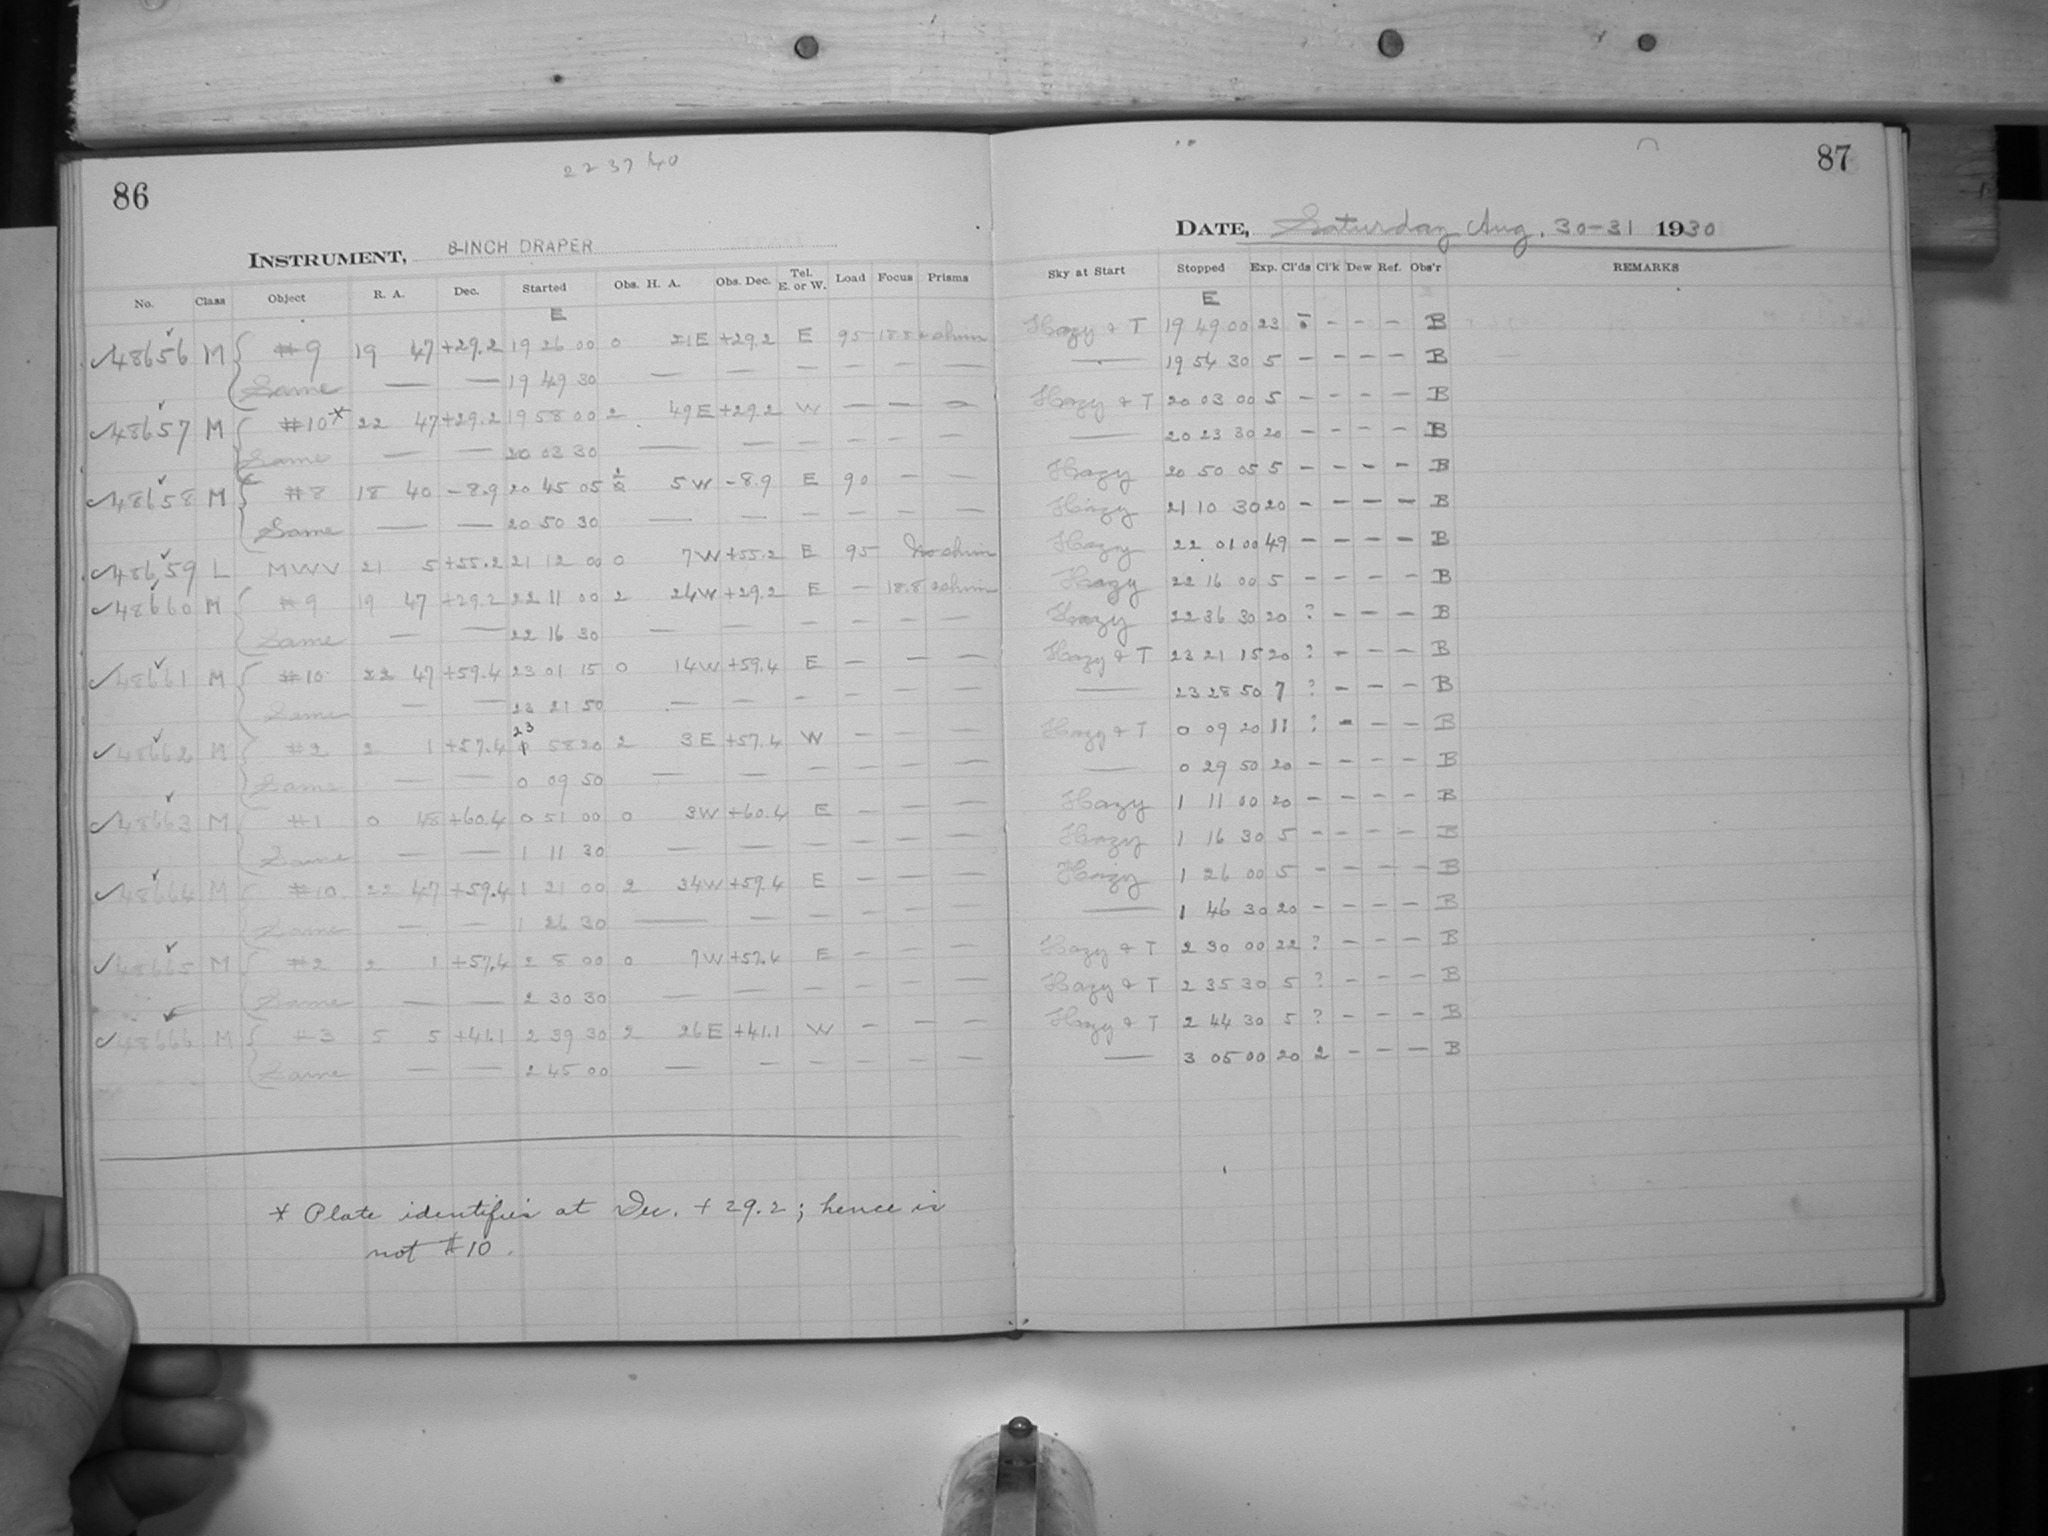 2 2 37 40
86
INSTRUMENT, 8-INCH DRAPER
No. Class Object R. A. Dec. Started Obs. H. A. Obs. Dec. Tel. E. or W. Load Focus Prisms
E
48656 M #9 19 47 +29.2 19 26 00 0 21E +29.2 E 95 18.8
Same — — 19 49 30 — — — — — —
48657 M #10* 22 47 +29.2 19 58 00 2 49E +29.2 W — — —
Same — — 20 03 30 — — — — — —
48658 M #8 18 40 -8.9 20 45 05 2 5W -8.9 E 90 — —
Same — — 20 50 30 — — — — — —
48659 L MWV 21 5 +55.2 21 12 00 0 7W +55.2 E 95 No shim
48660 M #9 19 47 +29.2 22 11 00 2 24W +29.2 E — 18.8
Same — — 22 16 30 — — — — — —
48661 M #10 22 47 +59.4 23 01 15 0 14W +59.4 E — — —
Same — — 23 21 50 — — — — — —
48662 M #2 2 1 +57.4 23 58 20 2 3E +57.4 W — — —
Same — — 0 09 50 — — — — — —
48663 M #1 0 48 +60.4 0 51 00 0 3W +60.4 E — — —
Same — — 1 11 30 — — — — — —
48664 M #10 22 47 +59.4 1 21 00 2 34W +59.4 E — — —
Same — — 1 26 30 — — — — — —
48665 M #2 2 1 +57.4 2 8 00 0 7W +57.4 E — — —
Same — — 2 30 30 — — — — — —
48666 M #3 5 5 +41.1 2 39 30 2 26E +41.1 W — — —
Same — — 2 45 00 — — — — — —
* Plate identifies at Dec. +29.2; hence is
not #10.
87
DATE, Saturday Aug. 30-31 1930
Sky at Start Stopped Exp. Cl'ds Cl'k Dew Ref. Obs'r REMARKS
E
Hazy & T 19 49 00 23 - - - - B
— 19 54 30 5 - - - - B
Hazy & T 20 03 00 5 - - - - B
— 20 23 30 20 - - - - B
Hazy 20 50 05 5 - - - - B
Hazy 21 10 30 20 - - - - B
Hazy 22 01 00 49 - - - - B
Hazy 22 16 00 5 - - - - B
Hazy 22 36 30 20 ? - - - B
Hazy & T 23 21 15 20 ? - - - B
— 23 28 50 7 ? - - - B
Hazy & T 0 09 20 11 ? - - - B
— 0 29 50 20 - - - - B
Hazy 1 11 00 20 - - - - B
Hazy 1 16 30 5 - - - - B
Hazy 1 26 00 5 - - - - B
— 1 46 30 20 - - - - B
Hazy & T 2 30 00 22 ? - - - B
Hazy & T 2 35 30 5 ? - - - B
Hazy & T 2 44 30 5 ? - - - B
— 3 05 00 20 2 - - - B